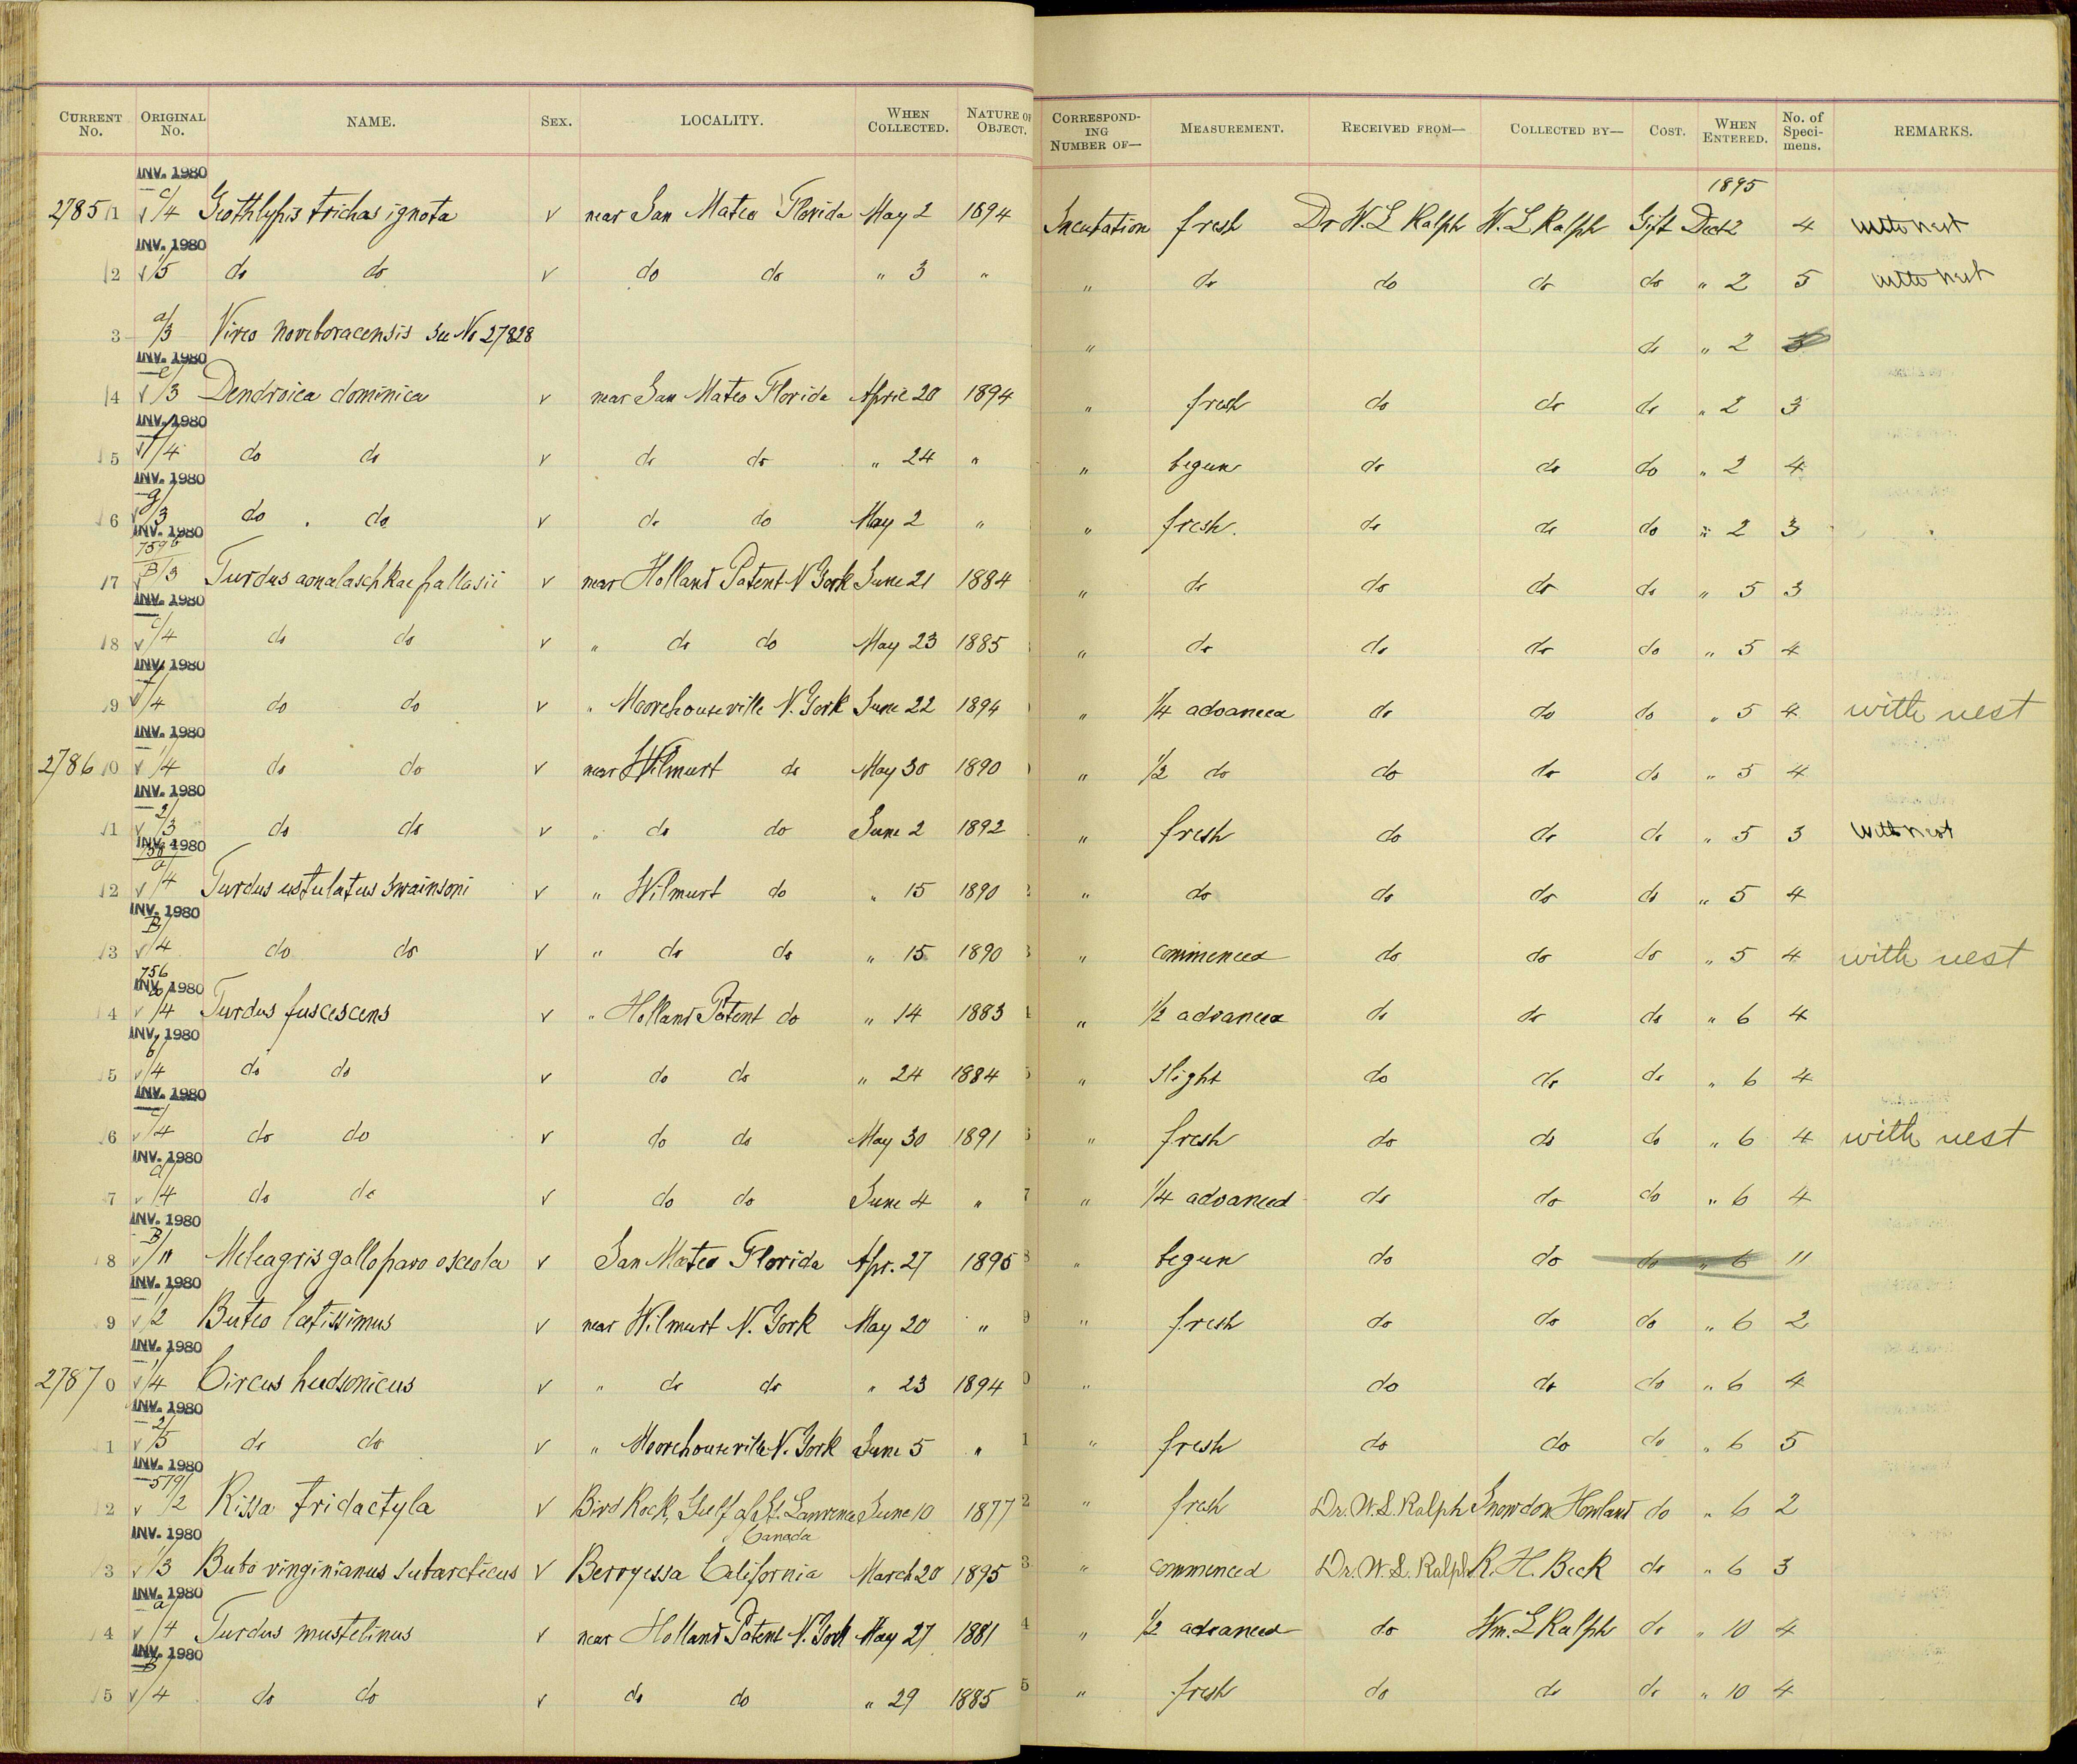 CURRENT No. ORIGINAL No. NAME. SEX. LOCALITY. WHEN COLLECTED. NATURE OF OBJECT. CORRESPONDING NUMBER OF— MEASUREMENT. RECEIVED FROM— COLLECTED BY— COST. WHEN ENTERED. No. of Specimens. REMARKS.
INV. 1980 1895
27851 v c/4 Geothlypis trichas ignota v near San Mateo Florida May 2 1894 Incubation fresh Dr W. L Ralph W. L Ralph Gift Dec 2 4 with nest
INV. 1980
2 v /5 do do v do do " 3 " " do do do do " 2 5 with nest
3 a/3 Vireo noveboracensis see No 27828 " do " 2
INV. 1980
4 v e/3 Dendroica dominica v near San Mateo Florida April 20 1894 " fresh do do do " 2 3
INV. 1980
5 v f/4 do do v do do " 24 " " begun do do do " 2 4
INV. 1980
6 v g/3 do do v do do May 2 " " fresh. do do do " 2 3
INV. 1980
7 B/3 Turdus aonalaschkae pallasii v near Holland Patent N York June 21 1884 " do do do do " 5 3
INV. 1980
8 v c/4 do do v " do do May 23 1885 " do do do do " 5 4
INV. 1980
9 v f/4 do do v " Moorehouseville N. York June 22 1894 " 1/4 advanced do do do " 5 4 with nest
INV. 1980
27860 v 1/4 do do v near Wilmurt do May 30 1890 " 1/2 do do do do " 5 4
INV. 1980
1 v 2/3 do do v " do do June 2 1892 " fresh do do do " 5 3 with nest
INV. 1980
2 v a/4 Turdus ustulatus swainsoni v " Wilmurt do " 15 1890 2 " do do do do " 5 4
INV. 1980
3 v B/4 do do v " do do " 15 1890 3 " commenced do do do " 5 4 with nest
756
INV. 1980
4 v a/4 Turdus fuscescens v " Holland Patent do " 14 1883 4 " 1/2 advanced do do do " 6 4
INV. 1980
5 v b/4 do do v do do " 24 1884 5 " slight do do do " 6 4
INV. 1980
6 v c/4 do do v do do May 30 1891 " fresh do do do " 6 4 with nest
INV. 1980
7 v d/4 do do v do do June 4 " 7 " 1/4 advanced do do do " 6 4
INV. 1980
8 v B/11 Meleagris gallopavo osceola v San Mateo Florida Apr. 27 1895 8 " begun do do do " 6 11
INV. 1980
9 v 1/2 Buteo latissimus v near Wilmurt N. York May 20 " 9 " fresh do do do " 6 2
INV. 1980
27870 v 1/4 Circus hudsonicus v " do do " 23 1894 0 " do do do " 6 4
INV. 1980
1 v 2/5 do do v " Moorehouseville N. York June 5 " 1 " fresh do do do " 6 5
INV. 1980
2 v 519/2 Rissa tridactyla v Bird Rock, Gulf of St. Lawrence June 10 1877 2 " fresh Dr. W. L. Ralph Snowdon Howland do " 6 2
Canada
INV. 1980
3 v 1/3 Bubo vinginianus subarcticus v Berryessa California March 20 1895 3 " commenced Dr. W. L. Ralph R. H. Beck do " 6 3
INV. 1980
4 v a/4 Turdus mustelinus v near Holland Patent N. York May 27 1881 4 " 1/2 advanced do Wm. L Ralph do " 10 4
INV. 1980
5 v B/4 do do v do do " 29 1885 5 " fresh do do do " 10 4